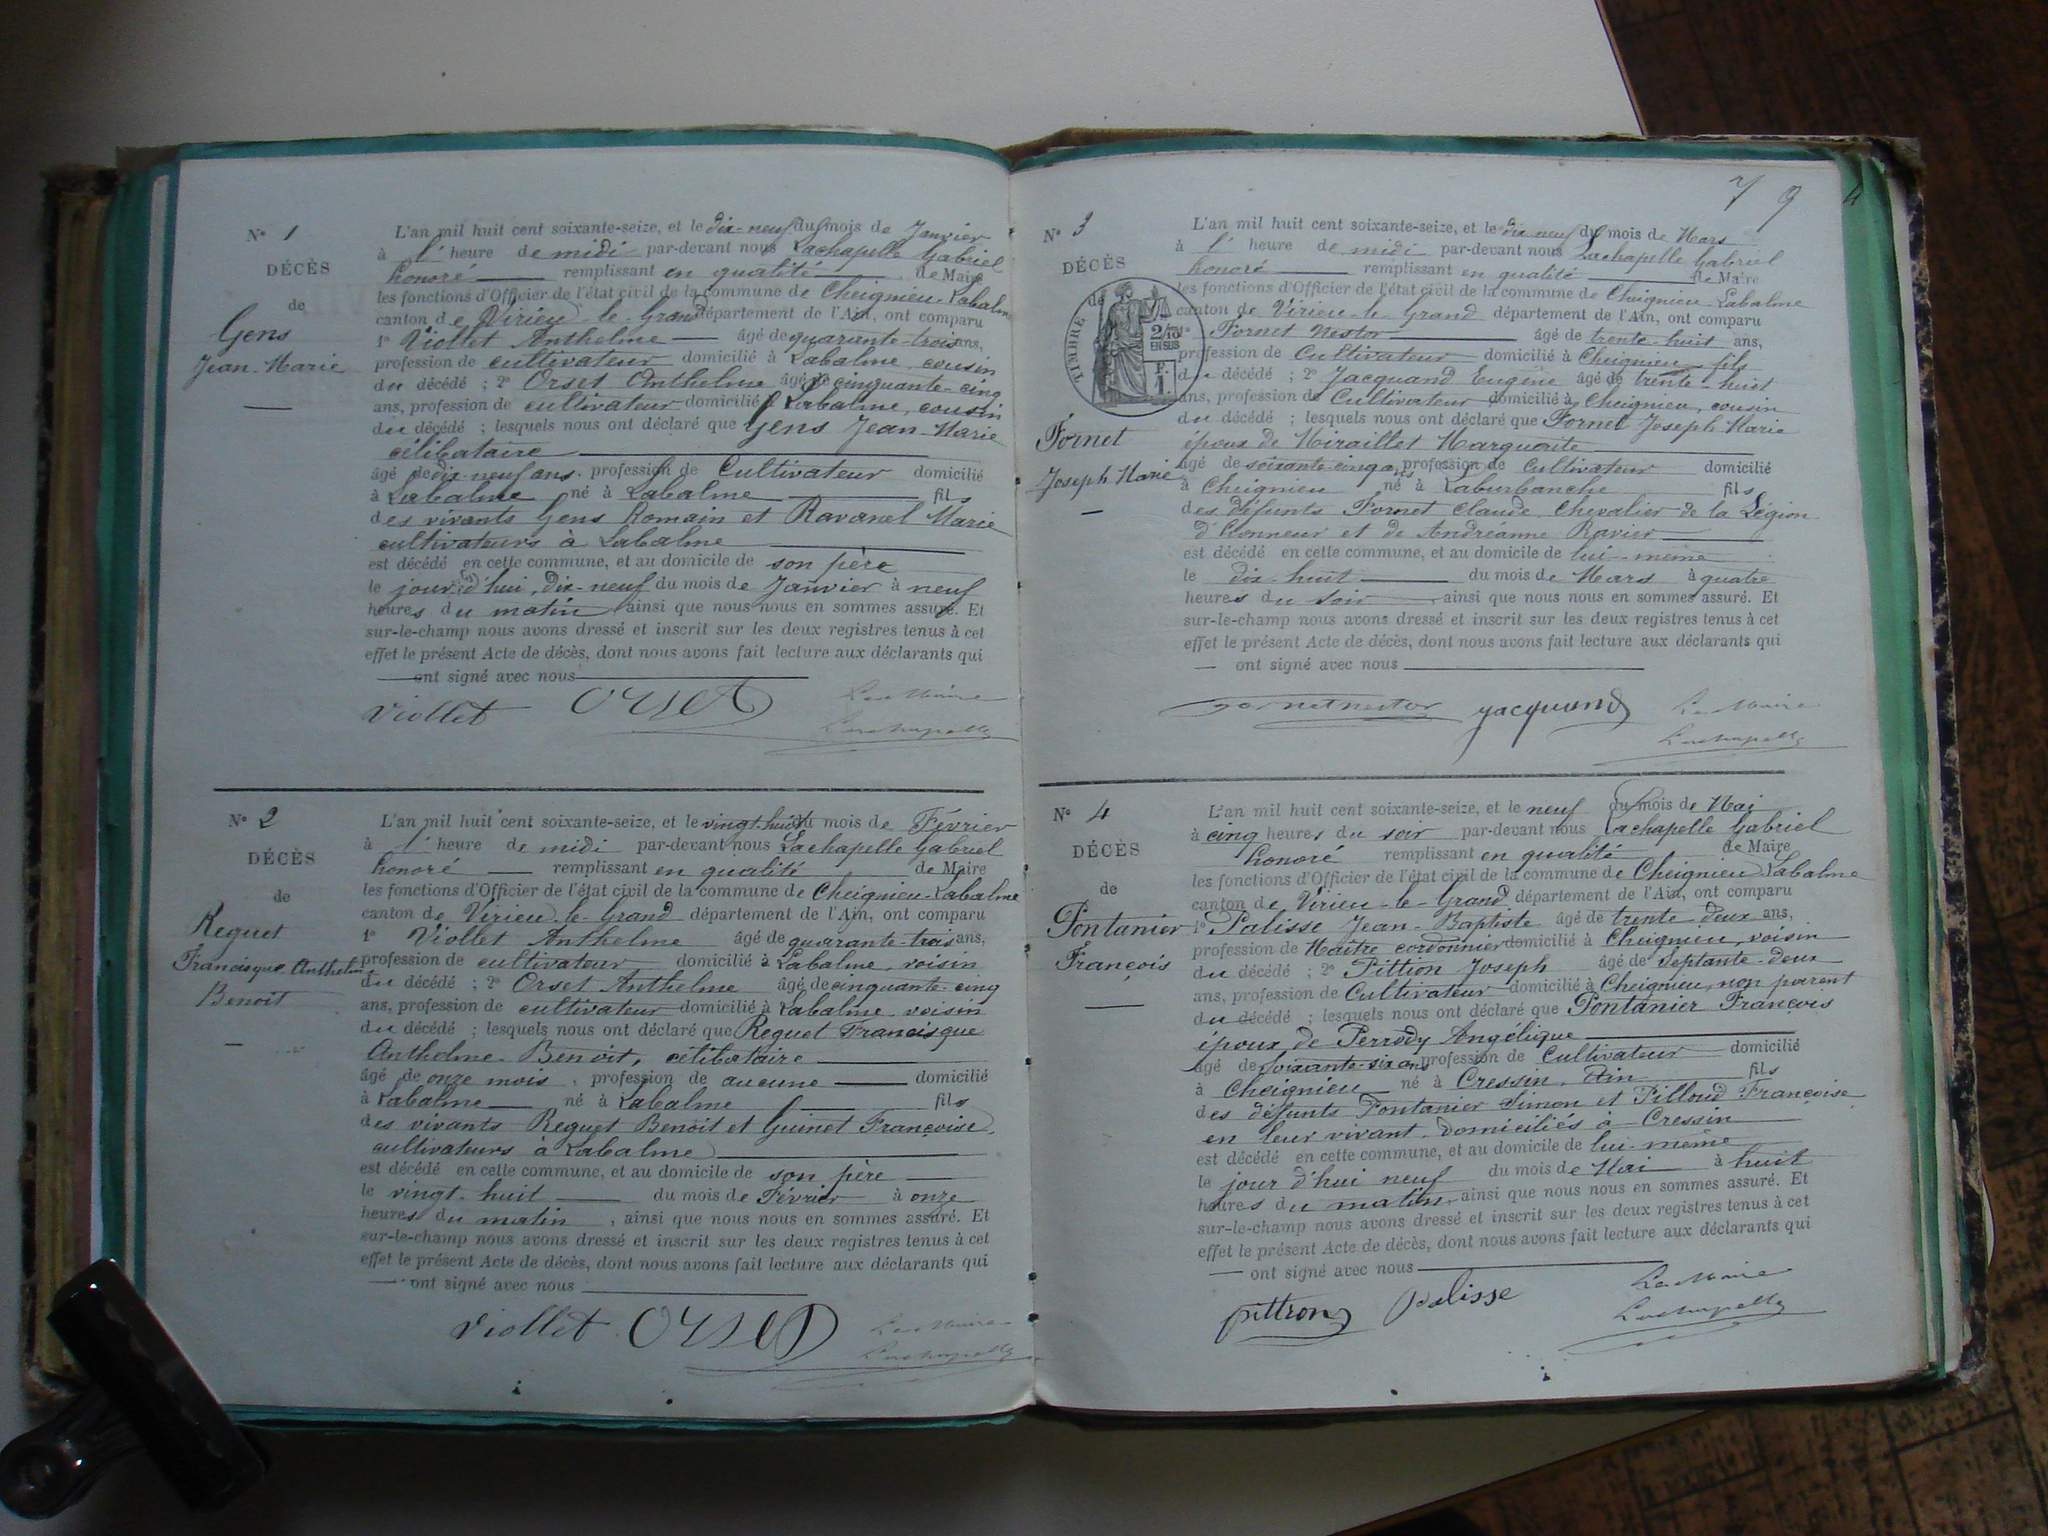 N° 1
DÉCÈS
de
Gens
Jean-Marie
L'an mil huit cent soixante-seize, et le dix-neuf du mois de Janvier
à l' heure de midi par-devant nous Lachapelle Gabriel
honoré remplissant en qualité de Maire
les fonctions d'Officier de l'état civil de la commune de Cheignieu-Labalme
canton de Virieu-le-Grand département de l'Ain, ont comparu
1° Viollet Anthelme âgé de quarante-trois ans,
profession de cultivateur domicilié à Labalme, cousin
du décédé ; 2° Orset Anthelme âgé de cinquante-cinq
ans, profession de cultivateur domicilié à Labalme, cousin
du décédé ; lesquels nous ont déclaré que Gens Jean-Marie
célibataire
âgé de dix-neuf ans, profession de Cultivateur domicilié
à Labalme né à Labalme fils
des vivants Gens Romain et Ravanel Marie
cultivateurs à Labalme
est décédé en cette commune, et au domicile de son père
le jour d'hui, dix-neuf du mois de Janvier à neuf
heures du matin, ainsi que nous nous en sommes assuré. Et
sur-le-champ nous avons dressé et inscrit sur les deux registres tenus à cet
effet le présent Acte de décès, dont nous avons fait lecture aux déclarants qui
ont signé avec nous
Viollet Orset Le Maire
Lachapelle
N° 2
DÉCÈS
de
Reguet
Francisque Anthelme
Benoît
L'an mil huit cent soixante-seize, et le vingt-huit du mois de Février
à l' heure de midi par-devant nous Lachapelle Gabriel
honoré remplissant en qualité de Maire
les fonctions d'Officier de l'état civil de la commune de Cheignieu-Labalme
canton de Virieu-le-Grand département de l'Ain, ont comparu
1° Viollet Anthelme âgé de quarante-trois ans,
profession de cultivateur domicilié à Labalme, voisin
du décédé ; 2° Orset Anthelme âgé de cinquante-cinq
ans, profession de cultivateur domicilié à Labalme, voisin
du décédé ; lesquels nous ont déclaré que Reguet Francisque
Anthelme-Benoît, célibataire
âgé de onze mois, profession de aucune domicilié
à Labalme né à Labalme fils
des vivants Reguet Benoît et Guinet Françoise,
cultivateurs à Labalme
est décédé en cette commune, et au domicile de son père
le vingt-huit du mois de Février à onze
heures du matin, ainsi que nous nous en sommes assuré. Et
sur-le-champ nous avons dressé et inscrit sur les deux registres tenus à cet
effet le présent Acte de décès, dont nous avons fait lecture aux déclarants qui
ont signé avec nous
Viollet Orset Le Maire
Lachapelle
4
N° 3
DÉCÈS
de
TIMBRE
2/10
EN SUS
F.
1
Fornet
Joseph Marie
L'an mil huit cent soixante-seize, et le dix-neuf du mois de Mars
à l' heure de midi par-devant nous Lachapelle Gabriel
honoré remplissant en qualité de Maire
les fonctions d'Officier de l'état civil de la commune de Cheignieu-Labalme
canton de Virieu-le-Grand département de l'Ain, ont comparu
1° Fornet Nestor âgé de trente-huit ans,
profession de Cultivateur domicilié à Cheignieu, fils
du décédé ; 2° Jacquand Eugène âgé de trente-huit
ans, profession de Cultivateur domicilié à Cheignieu, cousin
du décédé ; lesquels nous ont déclaré que Fornet Joseph Marie
époux de Miraillet Marguerite
âgé de soixante-cinq ans, profession de Cultivateur domicilié
à Cheignieu né à Laburbanche fils
des défunts Fornet Claude, Chevalier de la Légion
d'honneur et de Andréanne Ravier
est décédé en cette commune, et au domicile de lui-même
le dix-huit du mois de Mars à quatre
heures du soir, ainsi que nous nous en sommes assuré. Et
sur-le-champ nous avons dressé et inscrit sur les deux registres tenus à cet
effet le présent Acte de décès, dont nous avons fait lecture aux déclarants qui
ont signé avec nous
Fornet nestor Jacquand Le Maire
Lachapelle
N° 4
DÉCÈS
de
Pontanier
François
L'an mil huit cent soixante-seize, et le neuf du mois de Mai
à cinq heures du soir par-devant nous Lachapelle Gabriel
honoré remplissant en qualité de Maire
les fonctions d'Officier de l'état civil de la commune de Cheignieu Labalme
canton de Virieu-le-Grand département de l'Ain, ont comparu
1° Palisse Jean-Baptiste âgé de trente-deux ans,
profession de Maître cordonnier domicilié à Cheignieu, voisin
du décédé ; 2° Pittion Joseph âgé de septante-deux
ans, profession de Cultivateur domicilié à Cheignieu, non parent
du décédé ; lesquels nous ont déclaré que Pontanier François
époux de Perrody Angélique
âgé de soixante-six ans, profession de Cultivateur domicilié
à Cheignieu né à Cressin, Ain fils
des défunts Pontanier Simon et Pilloud Françoise
en leur vivant domiciliés à Cressin
est décédé en cette commune, et au domicile de lui-même
le jour d'hui neuf du mois de Mai à huit
heures du matin, ainsi que nous nous en sommes assuré. Et
sur-le-champ nous avons dressé et inscrit sur les deux registres tenus à cet
effet le présent Acte de décès, dont nous avons fait lecture aux déclarants qui
ont signé avec nous
pittion palisse Le Maire
Lachapelle